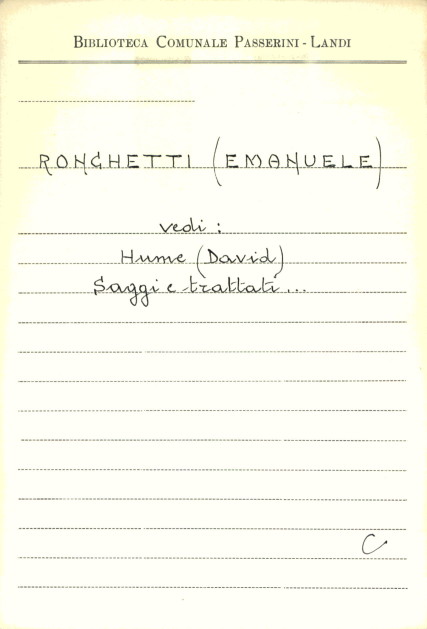 BIBLIOTECA COMUNALE PASSERINI - LANDI
RONCHETTI (EMANUELE)
vedi :
Hume (David)
Saggi e trattati ...
C